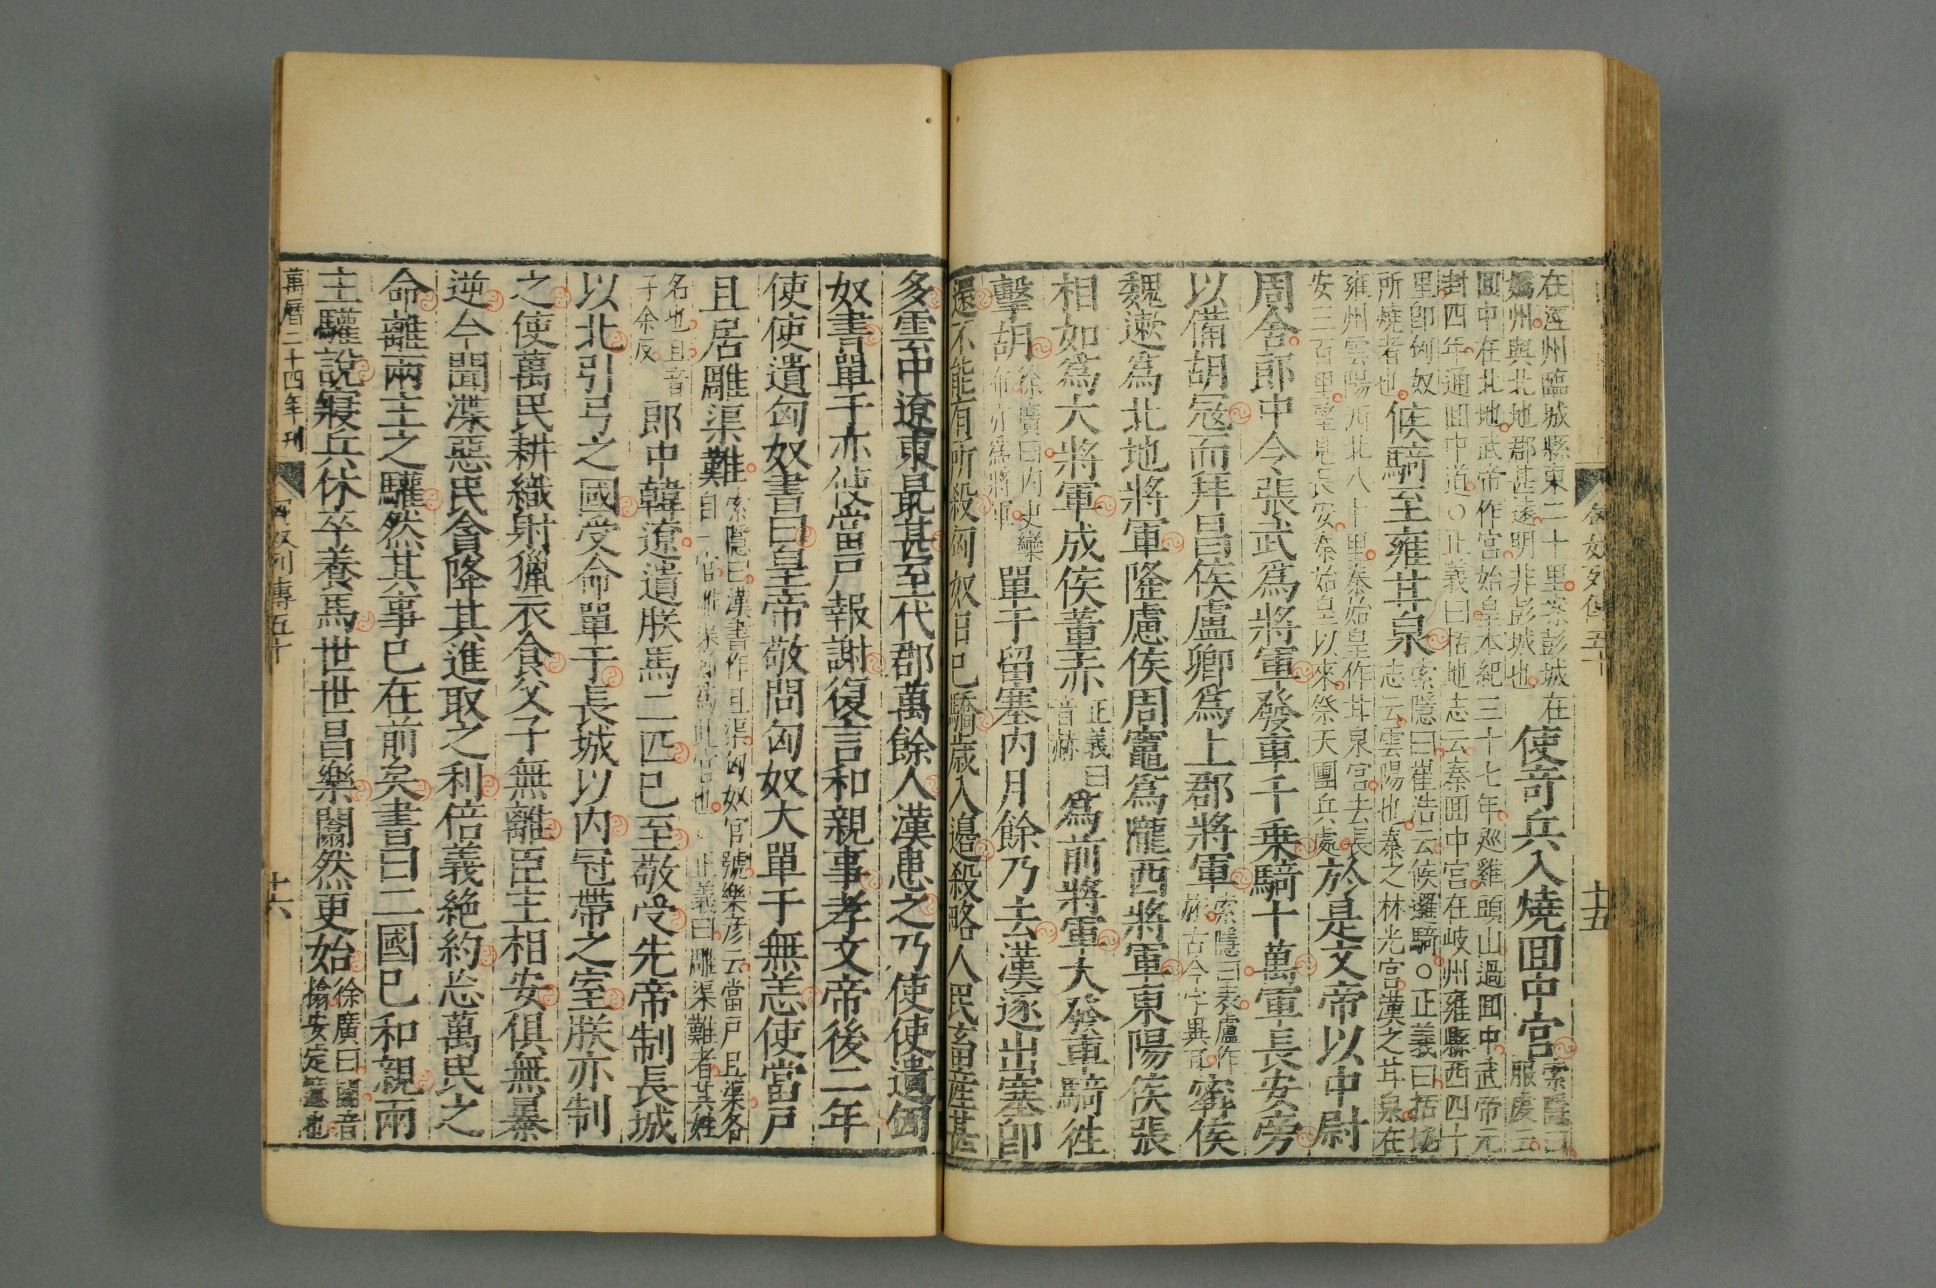 匈奴列傳五十 十五
在涇州臨城縣東二十里案彭城在
嬀州與北地郡甚遠明非彭城也
使奇兵入燒回中宮
索隱曰
服虔云
回中在北地武帝作宮始皇本紀三十七年廵雞頭山過回中武帝元
封四年通回中道○正義曰括地志云秦回中宮在岐州雍縣西四十
里即匈奴
所燒者也
候騎至雍甘泉
索隱曰崔浩云候邏騎○正義曰括地
志云雲陽也秦之林光宮漢之甘泉在
雍州雲陽西北八十里秦始皇作甘泉宮去長
安三百里望見長安秦始皇以來祭天圜丘處
於是文帝以中尉
周舍郎中令張武爲將軍發車千乗騎十萬軍長安旁
以備胡宼而拜昌侯盧卿爲上郡將軍
索隱曰表盧作
旅古今字異耳
甯侯
魏遬爲北地將軍隆慮侯周竈爲隴西將軍東陽侯張
相如爲大將軍成侯董赤
正義曰
音赫
爲前將軍大發車騎徃
擊胡
徐廣曰内史欒
布亦爲將軍
單于留塞内月餘乃去漢逐出塞即
還不能有所殺匈奴日已驕歲入邊殺略人民畜産甚
多雲中遼東最甚至代郡萬餘人漢患之乃使使遺匈
奴書單于亦使當戸報謝復言和親事孝文帝後二年
使使遺匈奴書曰皇帝敬問匈奴大單于無恙使當戸
且居雕渠難
索隱曰漢書作且渠匈奴官號樂彦云當戸且渠各
自一官雕渠難爲此官也 正義曰雕渠難者其姓
名也且音
子余反
郎中韓遼遺朕馬二匹已至敬受先帝制長城
以北引弓之國受命單于長城以内冠帶之室朕亦制
之使萬民耕織射獵衣食父子無離臣主相安俱無暴
逆今聞渫惡民貪降其進取之利倍義絶約忘萬民之
命離兩主之驩然其事已在前矣書曰二國已和親兩
主驩說寢兵休卒養馬世世昌樂闟然更始
徐廣曰闟音
搨安定意也
萬曆二十四年刊 匈奴列傳五十 十六